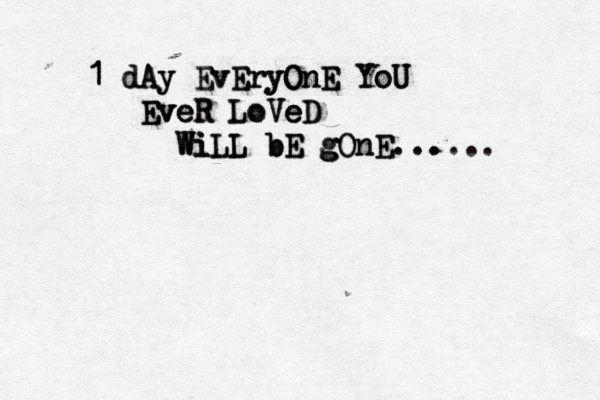 1 dAy EvEryOnE YoU
EveR LoVeD
WiLL bE gOnE......